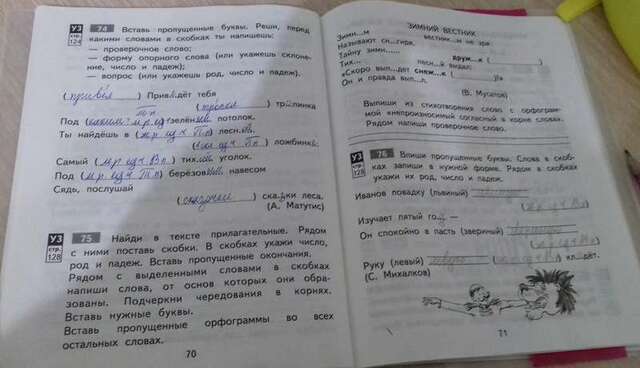 УЗ
стр.
124
74 Вставь пропущенные буквы. Реши, перед
какими словами в скобках ты напишешь:
— проверочное слово;
— форму опорного слова (или укажешь склоне-
ние, число и падеж);
— вопрос (или укажешь род, число и падеж).
( привёл ) Приведёт тебя
( тропка ) тропинка
Под ( зелён потолок.
Ты найдёшь в ( лесн
) ложбинке
Самый ( м.р. ед.ч Вп ) тих уголок.
Под ( м.р ед.ч Тп ) берёзов навесом
Сядь, послушай
( сказочка ) сказки леса.
(А. Матутис)
УЗ
стр.
128
75 Найди в тексте прилагательные. Рядом
с ними поставь скобки. В скобках укажи число,
род и падеж. Вставь пропущенные окончания.
Рядом с выделенными словами в скобках
напиши слова, от основ которых они обра-
зованы. Подчеркни чередования в корнях.
Вставь нужные буквы.
Вставь пропущенные орфограммы во всех
остальных словах.
70
ЗИМНИЙ ВЕСТНИК
Зимн...м вестник...м не зря
Называют сн...гиря.
Тайну зимн...
Тих... лесн...й друж...к (
видал:
«Скоро вып...дет снеж...к ( )!»
Он и правда вып...л.
(В. Мусатов)
Выпиши из стихотворения слово с орфограм-
мой «непроизносимый согласный в корне слова».
Рядом напиши проверочное слово.
УЗ
стр.
128
76 Впиши пропущенные буквы. Слова в скоб-
ках запиши в нужной форме. Рядом в скобках
укажи их род, число и падеж.
Иванов повадку (львиный)
Изучает пятый го
Он спокойно в пасть (звериный)
Руку (левый) ( ) кл...дёт.
(С. Михалков)
71